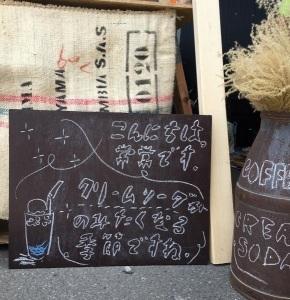 MBIA S.A.S
0120
YAMA
YAMA
こんにちは。
常営です。
クリームソーダが
のみたくなる
季節ですね。
COFFE
CREA
SODA